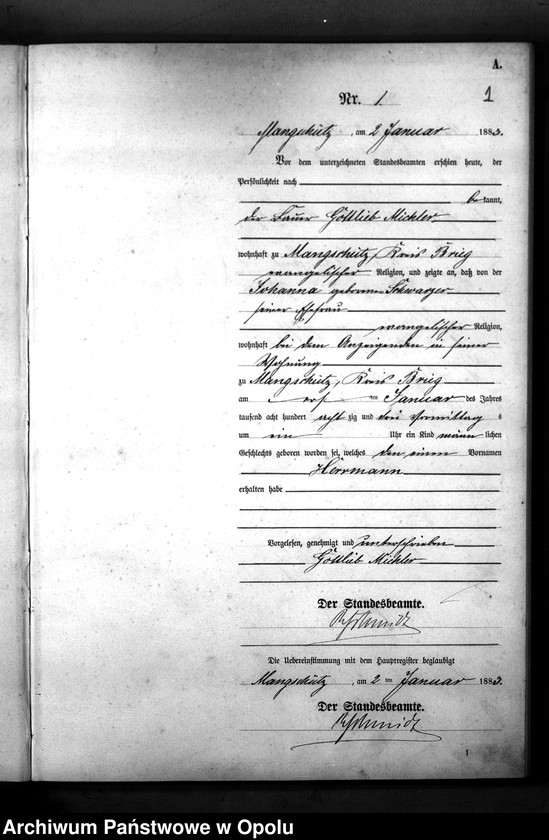 A.
Nr. 1
1
Mangschütz, am 2 Januar 1883.
Vor dem unterzeichneten Standesbeamten erschien heute, der
Persönlichkeit nach
bekannt,
der Bauer Gottlieb Michler
wohnhaft zu Mangschütz, Kreis Brieg
evangelischer Religion, und zeigte an, daß von der
Johanna geborenen Schwarzer
seiner Ehefrau
evangelischer Religion,
wohnhaft bei dem Anzeigenden in seiner
Wohnung
zu Mangschütz, Kreis Brieg
am ersten Januar des Jahres
tausend acht hundert achtzig und drei Vormittags
um ein Uhr ein Kind männlichen
Geschlechts geboren worden sei, welches den einen Vornamen
Herrmann
erhalten habe
Vorgelesen, genehmigt und unterschrieben
Gottlieb Michler
Der Standesbeamte.
Die Uebereinstimmung mit dem Hauptregister beglaubigt
Mangschütz, am 2 ten Januar 1883.
Der Standesbeamte.
1
Archiwum Państwowe w Opolu